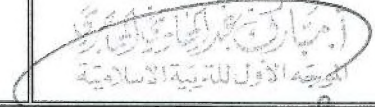 أ. مبارك عبد الهادي
الموجه الأول للتربية الاسلامية